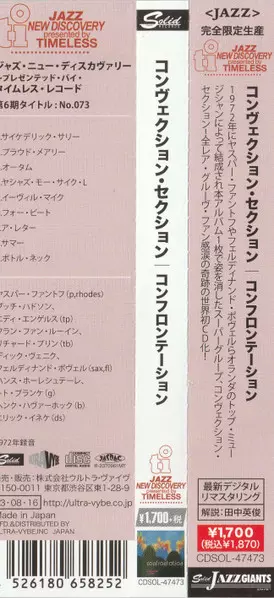 JAZZ
NEW DISCOVERY
presented by
TIMELESS
ジャズ・ニュー・ディスカヴァリー
プレゼンテッド・バイ・
タイムレス・レコード
第6期タイトル：No.073
.サイケデリック・サリー
.プラウド・メアリー
.オータム
.ヤジャズ・モー・サイク・L
.イーヴィル・マイク
.フォー・ビート
.ア・レター
.サマー
.ボトル・ネック
ヤスパー・ファントフ(p,rhodes)
ディ・エンゲルス(tp)
フラン・ファン・ルーイン、
リチャード・プリン(tb)
ディック・ヴェニク、
フェルディナンド・ポヴェル(sax,fl)
ハンス・ホーレシュテーレ、
ート・ブランケ(g)
ヘンク・ハヴァーホック(b)
エリック・イネケ(ds)
972年録音
売・販売：株式会社ウルトラ・ヴァイヴ
150-0011 東京都渋谷区東1-28-9
3・08・16 http://ultra-vybe.co.jp
Made in Japan
FD.&DISTRIBUTED BY
LTRA-VYBE,INC JAPAN
5 26180 658252
Solid
RECORDS
コンヴェクション・セクション｜コンフロンテーション
JAZZ
NEW DISCOVERY
presented by
TIMELESS
¥1,700+税
CDSOL-47473
<JAZZ>
完全限定生産
JAZZ
NEW DISCOVERY
presented by
TIMELESS
コンヴェクション・セクション｜コンフロンテーション
1972年にヤスパー・ファントフやフェルディナンド・ポヴェルらオランダのトップ・ミュー
ジシャンによって結成され本アルバム1枚で姿を消したスーパーグループ、コンヴェクション・
セクション！全レア・グルーヴ・ファン感涙の奇跡の世界初CD化！
最新デジタル
リマスタリング
解説：田中英俊
¥1,700
(税込¥1,870)
CDSOL-47473
Solid JAZZ GIANTS